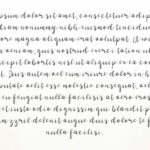 ipsum dolor sit amet, consectetuer adip
diam nonummy nibh euismod tincidun
ore magna aliquam erat volutpat. Ut w
veniam, quis nostrud exerci tation ul
scipit lobortis nisl ut aliquip ex ea co
t. Duis autem vel eum iriure dolor in h
putate velit esse molestie consequat, vel
eu feugiat nulla facilisis at vero eros
et iusto odio dignissim qui blandit p
m zzril delenit augue duis dolore te f
nulla facilisi.